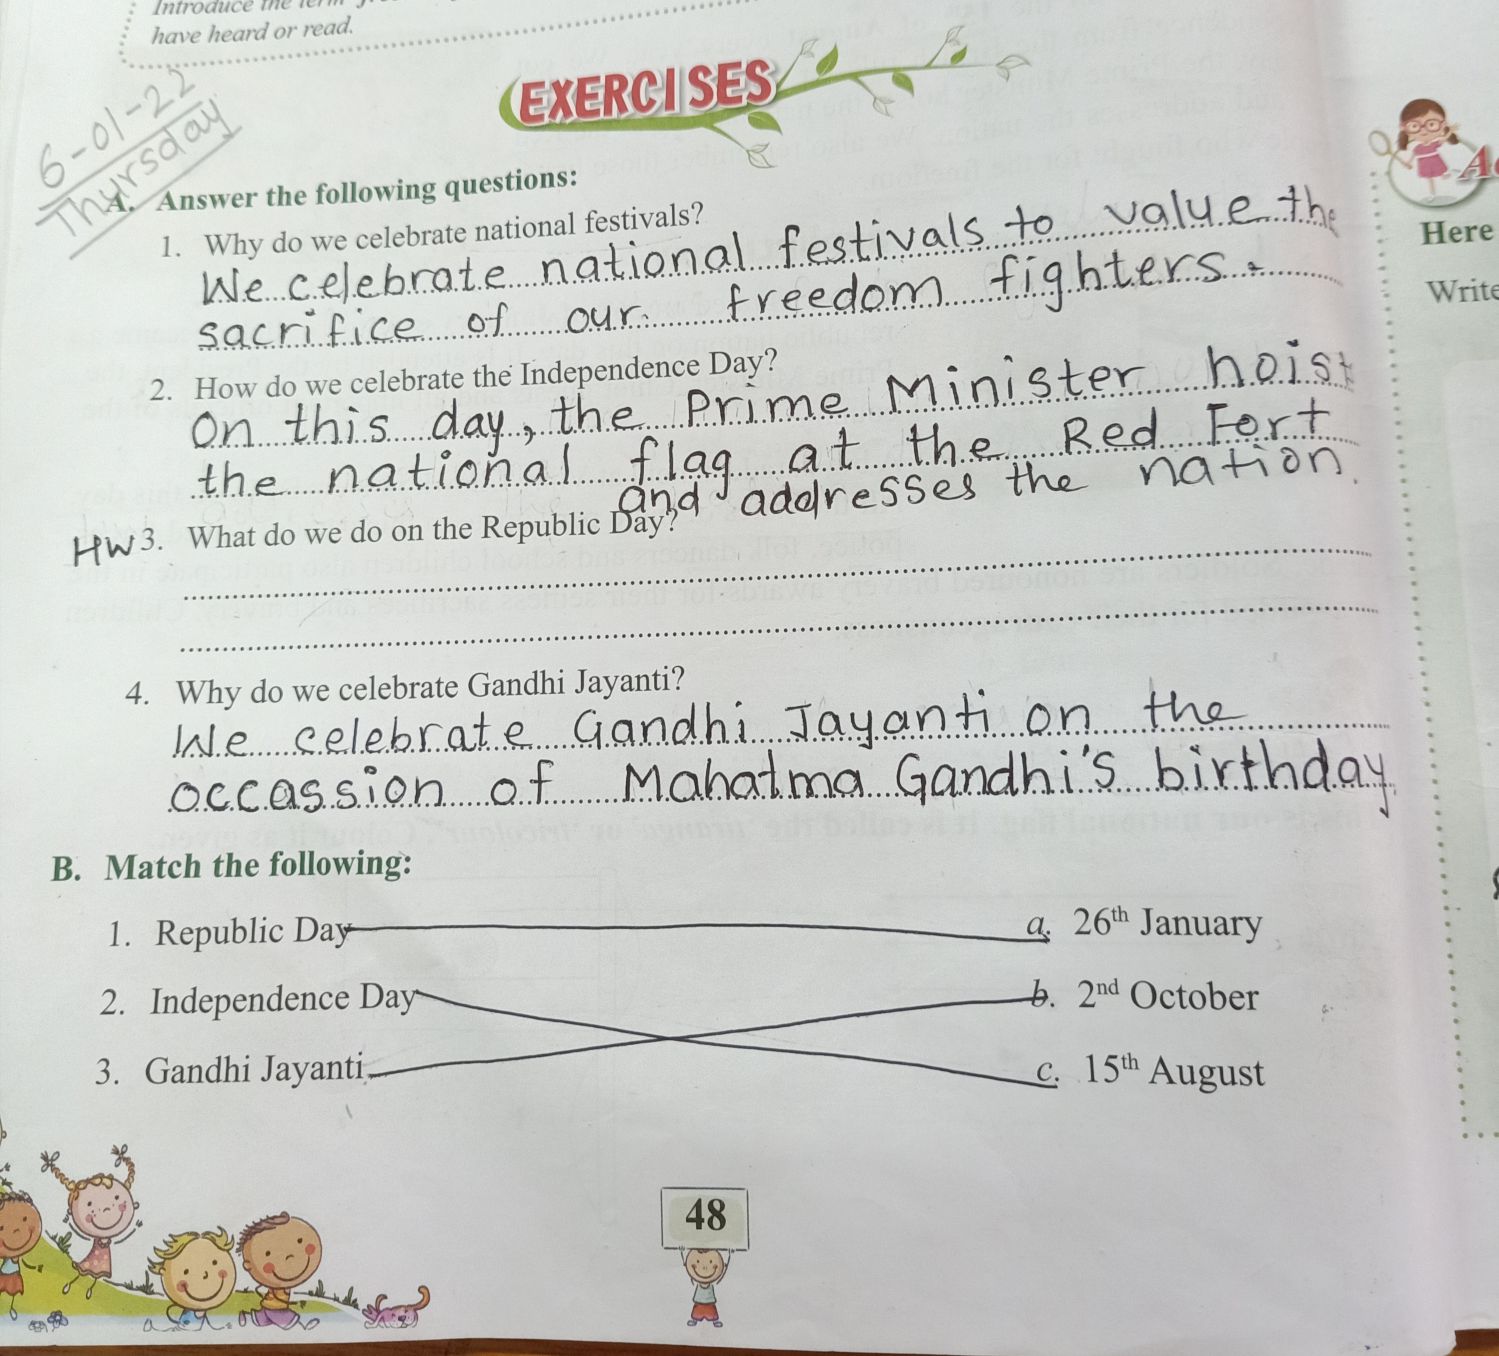 Introduce the
have heard or read.
EXERCISES
6-01-22
Thursday
A. Answer the following questions:
1. Why do we celebrate national festivals?
We celebrate national festivals to value the
sacrifice of our freedom fighters.
2. How do we celebrate the Independence Day?
On this day, the Prime Minister hoist
the national flag at the Red Fort
and addresses the nation.
HW 3. What do we do on the Republic Day?
4. Why do we celebrate Gandhi Jayanti?
We celebrate Gandhi Jayanti on the
occassion of Mahatma Gandhi's birthday.
B. Match the following:
1. Republic Day a. 26th January
2. Independence Day b. 2nd October
3. Gandhi Jayanti c. 15th August
48
Here
Write